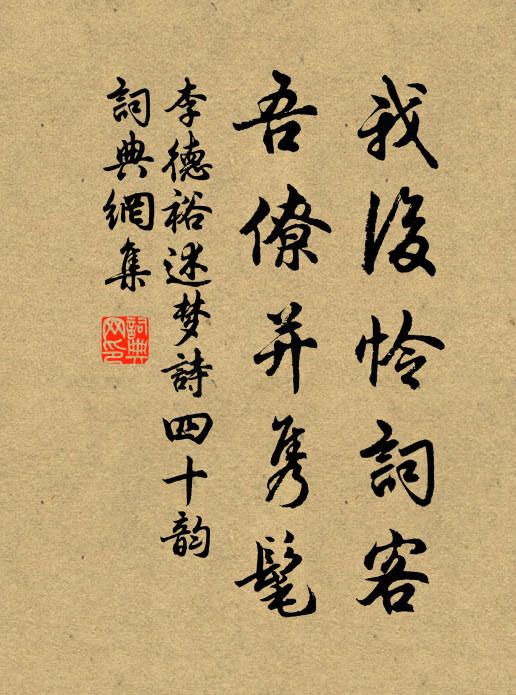 我後怜詞客
吾僚并隽髦
李德裕述梦詩四十韵
詞典網集
詞典网印